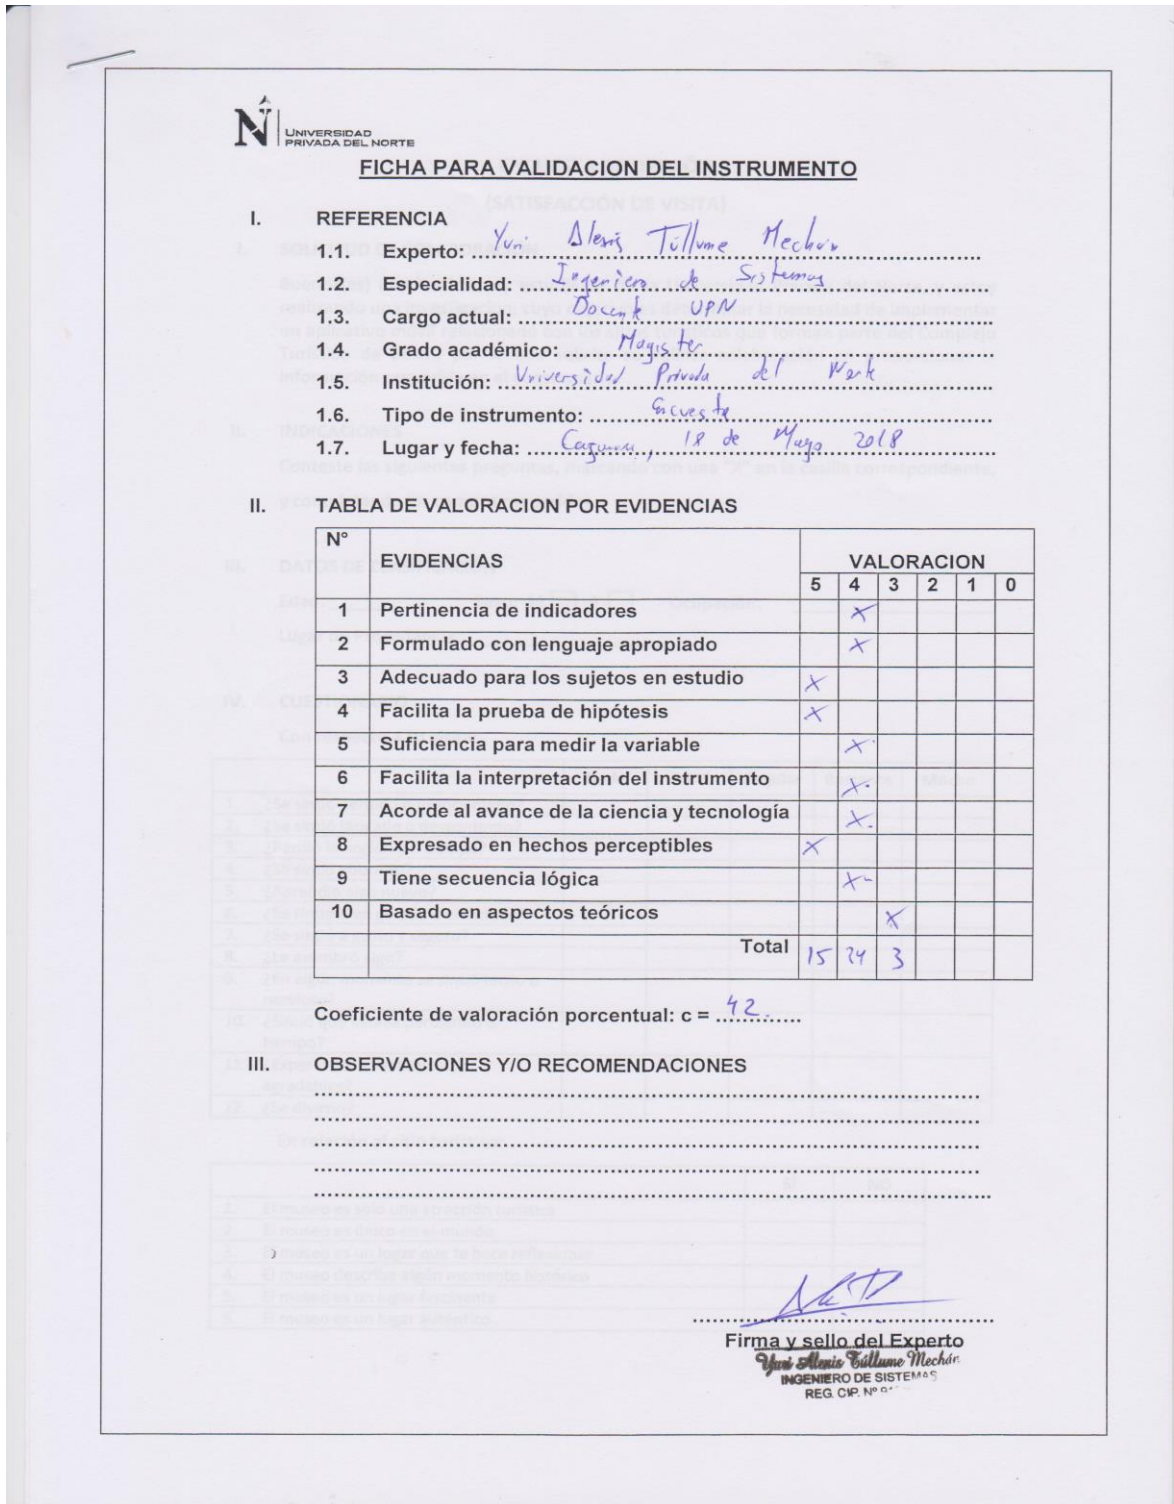 UNIVERSIDAD
PRIVADA DEL NORTE
FICHA PARA VALIDACION DEL INSTRUMENTO
(SATISFACCIÓN DE VISITA)
I. REFERENCIA
1.1. Experto: Yuri Alexis Túllume Mechán
1.2. Especialidad: Ingeniero de Sistemas
1.3. Cargo actual: Docente UPN
1.4. Grado académico: Magister
1.5. Institución: Universidad Privada del Norte
1.6. Tipo de instrumento: Encuesta
1.7. Lugar y fecha: Cajamarca, 18 de Mayo 2018
II. TABLA DE VALORACION POR EVIDENCIAS
N° EVIDENCIAS VALORACION
5 4 3 2 1 0
1 Pertinencia de indicadores X
2 Formulado con lenguaje apropiado X
3 Adecuado para los sujetos en estudio X
4 Facilita la prueba de hipótesis X
5 Suficiencia para medir la variable X
6 Facilita la interpretación del instrumento X
7 Acorde al avance de la ciencia y tecnología X
8 Expresado en hechos perceptibles X
9 Tiene secuencia lógica X
10 Basado en aspectos teóricos X
Total 15 24 3
Coeficiente de valoración porcentual: c = 42
III. OBSERVACIONES Y/O RECOMENDACIONES
Firma y sello del Experto
Yuri Alexis Túllume Mechán
INGENIERO DE SISTEMAS
REG. CIP. Nº